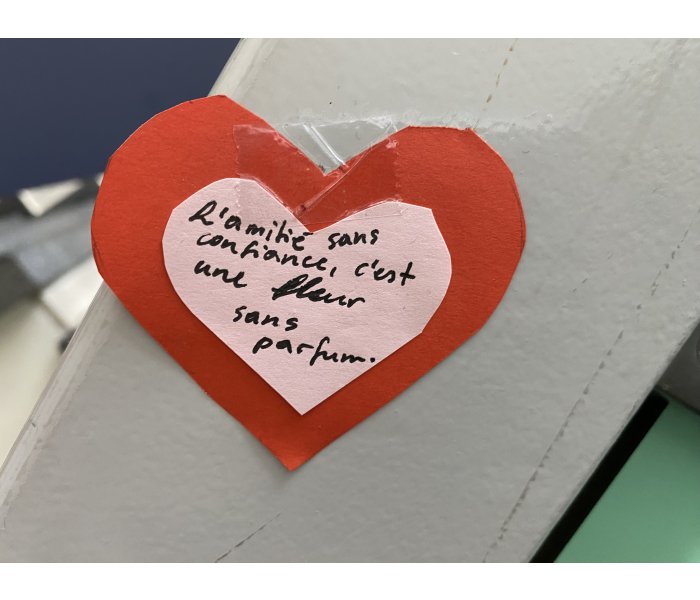 L'amitié sans
confiance, c'est
une fleur
sans
parfum.